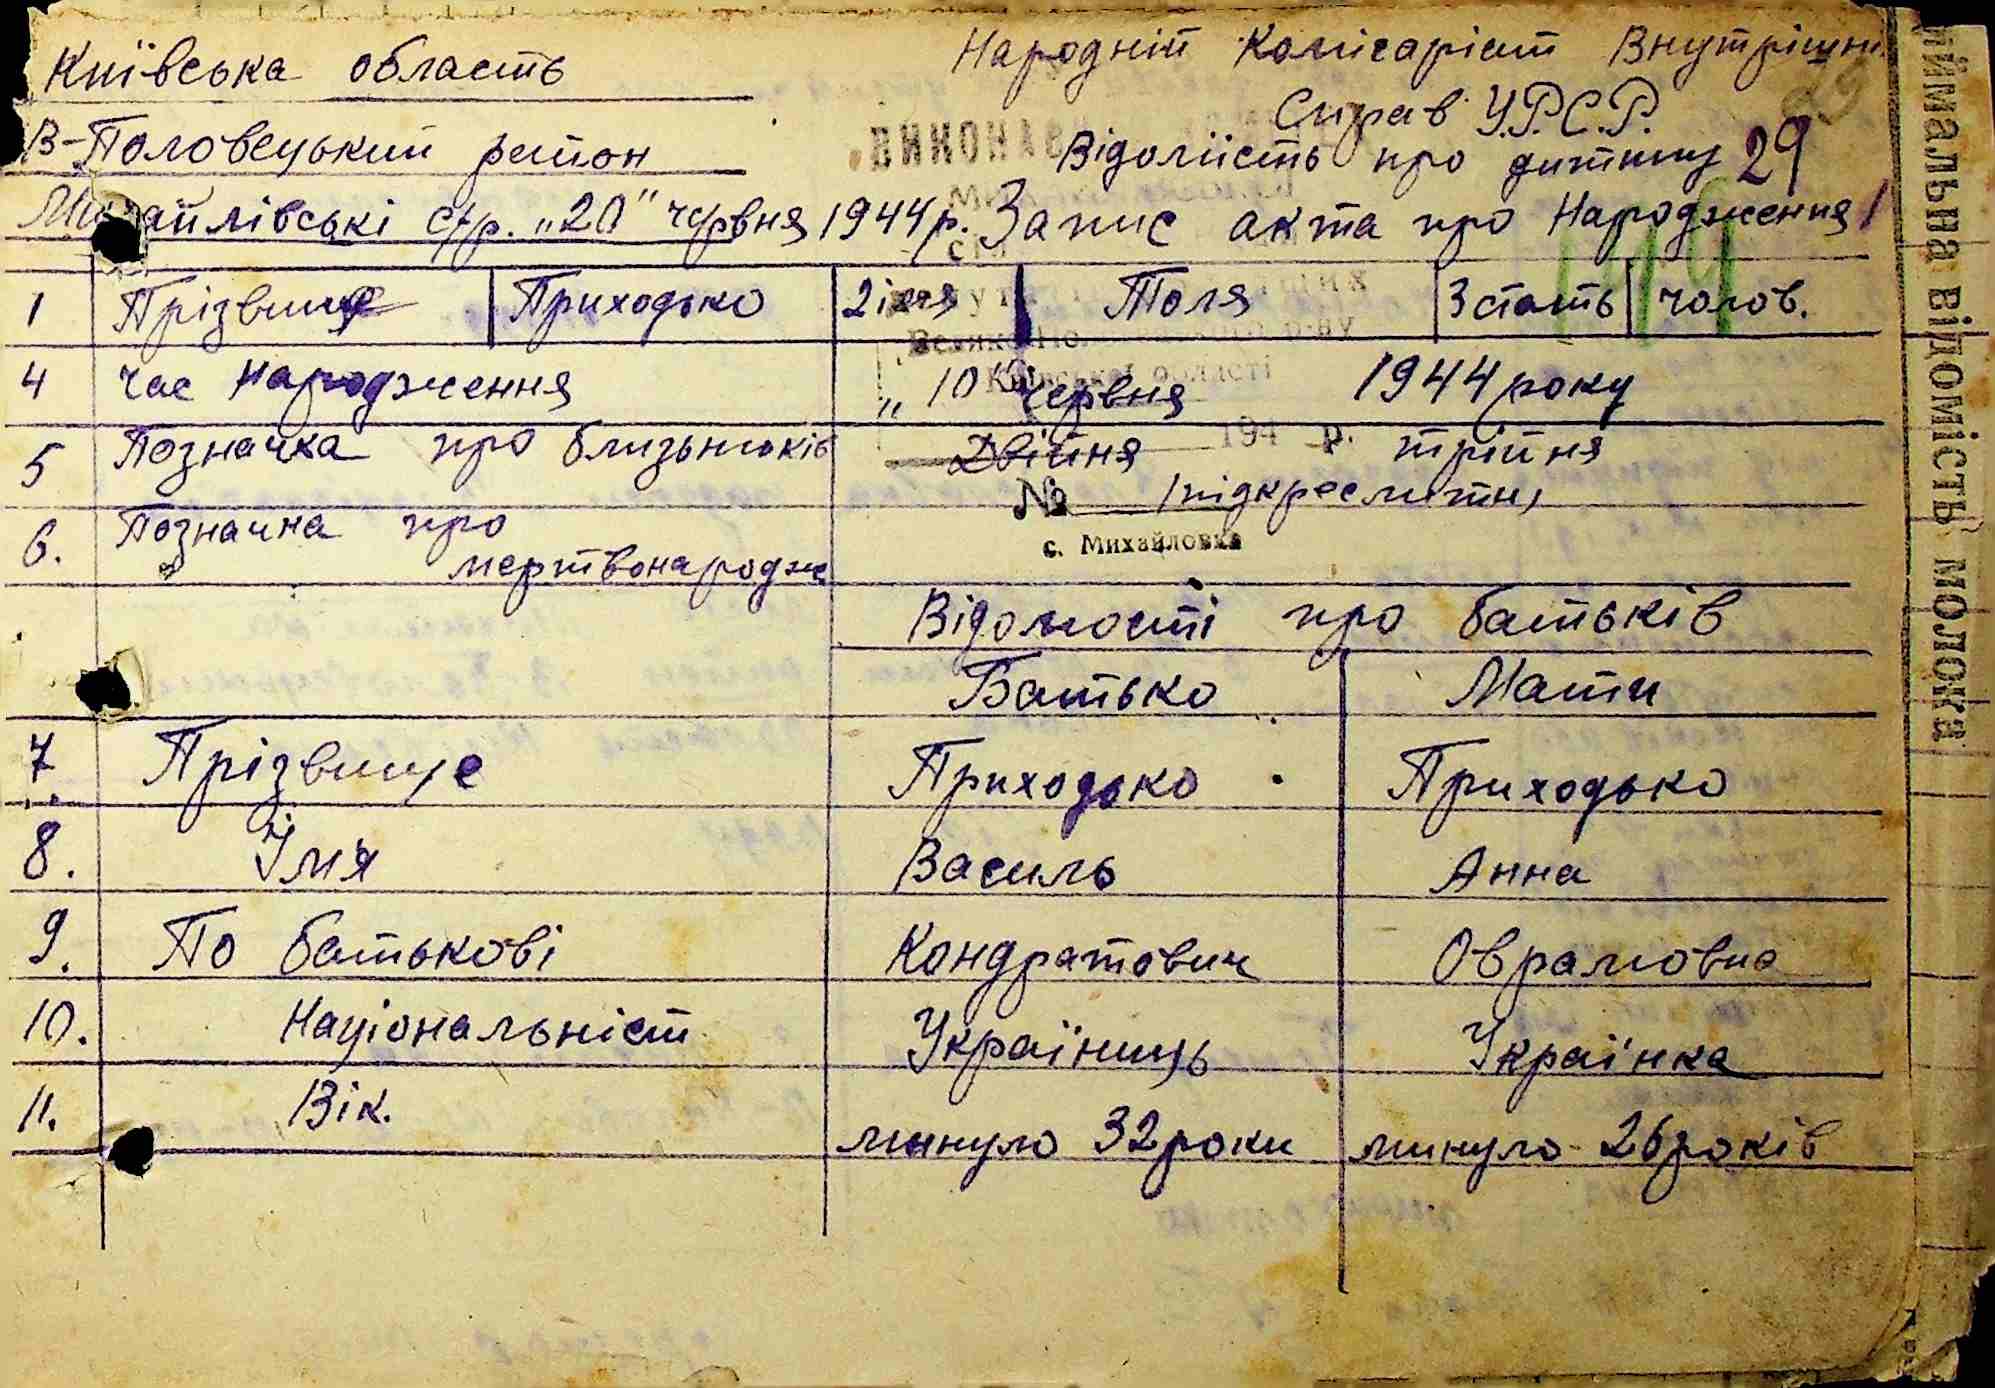 Київська область
Народній Комісаріат Внутрішні
Справ У.Р.С.Р.
В-Половецький район
Відомість про дитину 29
Михайлівські с/р. „20" червня 1944 р. Запис акта про Народження
1 Прізвище Приходько 2 імя Толя 3 стать чолов.
4 час Народження „10" Червня 1944 року
5 Позначка про близьнюків Двійня трійня
№ (підкреслити)
6. Позначна про
мертвонародж
с. Михайловка
Відомості про батьків
Батько Мати
7. Прізвище Приходько Приходько
8. Їм'я Василь Анна
9. По батькові Кондратович Оврамовна
10. Національніст Україниць Українка
11. Вік. минуло 32 роки минуло 26 років
194 р.
Київської області
ймальна відомість молока